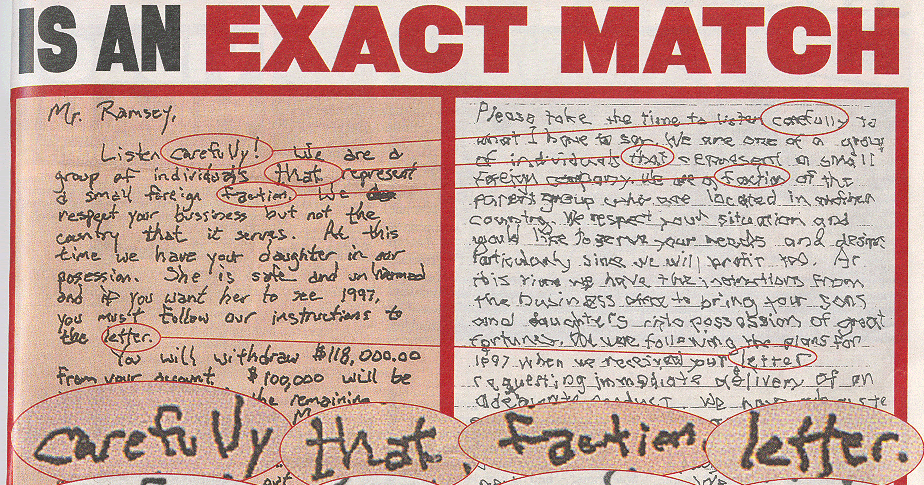 IS AN EXACT MATCH
Mr. Ramsey,
Listen carefully! We are a
group of individuals that represent
a small foreign faction. We do
respect your bussiness but not the
country that it serves. At this
time we have your daughter in our
posession. She is safe and unharmed
and if you want her to see 1997,
you must follow our instructions to
the letter.
You will withdraw $118,000.00
from your account. $100,000 will be
the remaining
Please take the time to listen carefully to
what I have to say. We are one of a group
of individuals that represent a small
foreign company. We are a faction of the
parent group who are located in another
country. We respect your situation and
would like to serve your needs and desires
particularly since we will profit too. At
this time we have the instructions from
the business office to bring your sons
and daughters into possession of great
fortunes. We were following the plans for
1997 when we received your letter
requesting immediate delivery of an
We have
carefully that. faction. letter.